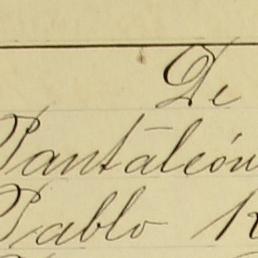 De
Pantaleón
Pablo R